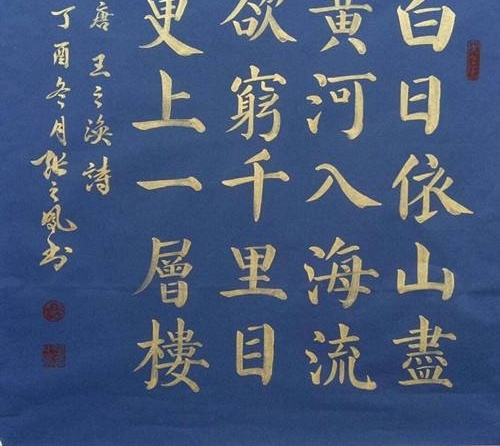 白日依山盡
黃河入海流
欲窮千里目
更上一層樓
唐 王之渙詩
丁酉冬月張之鳳書